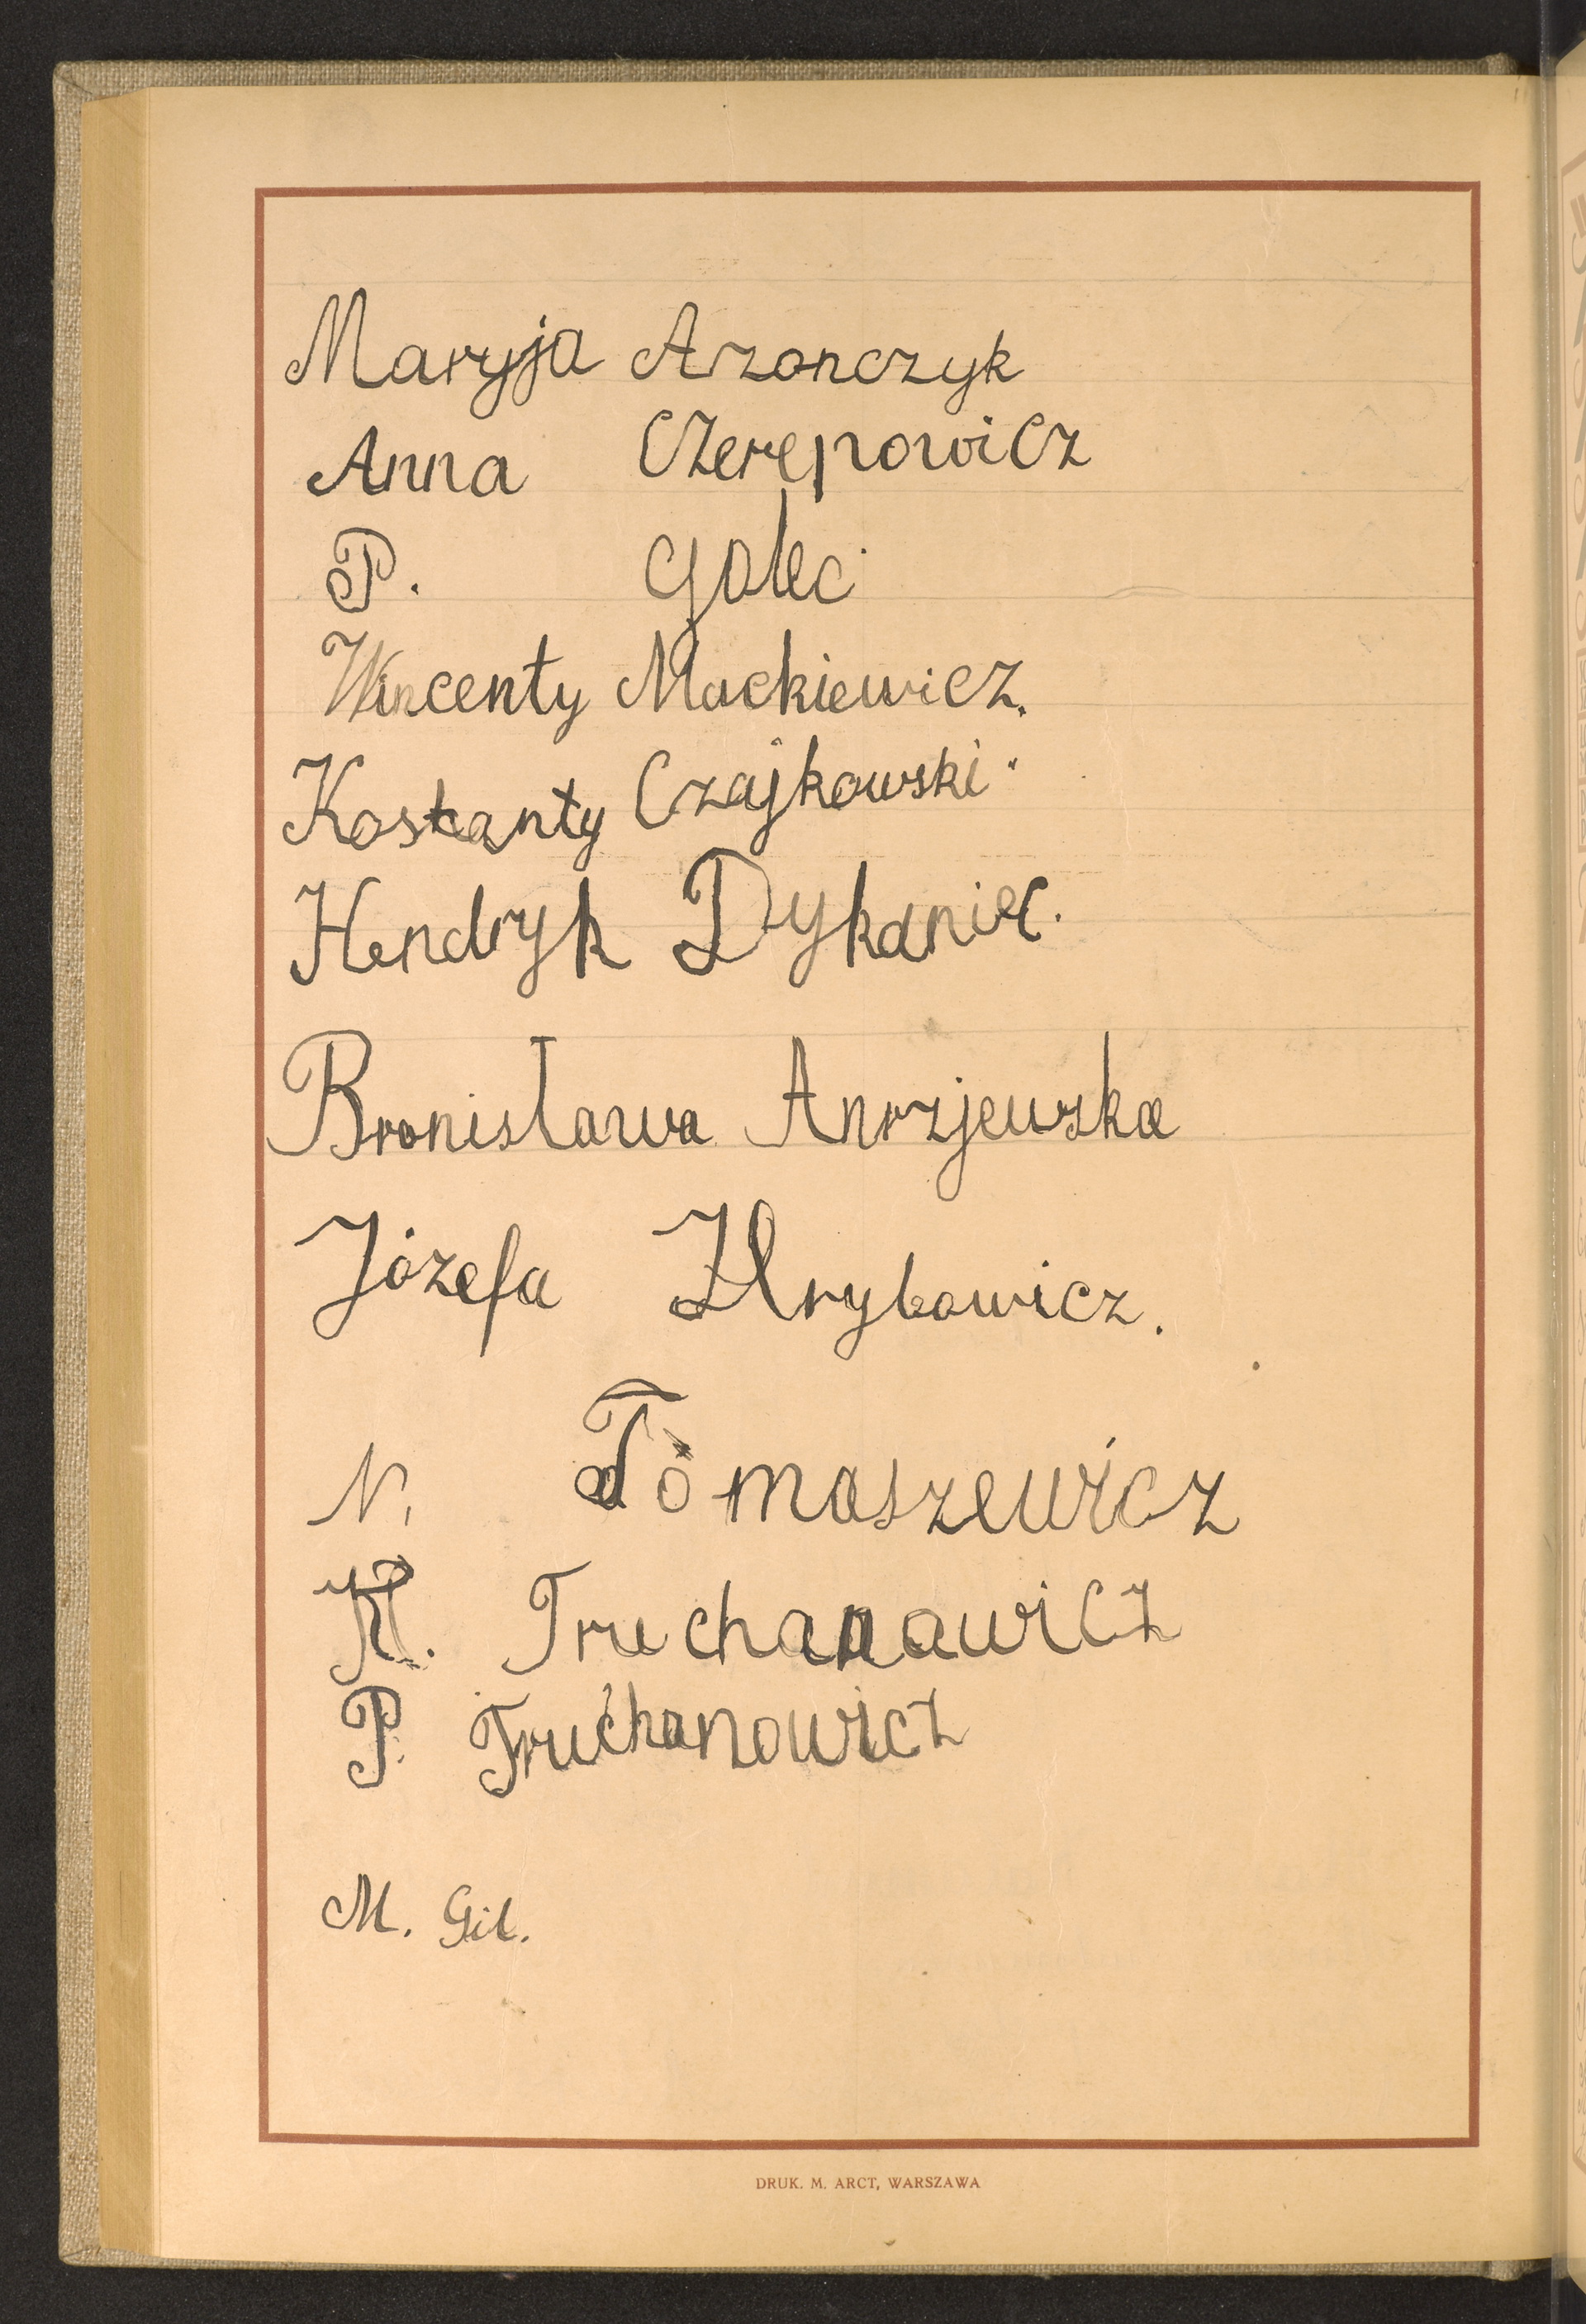 Maryja Arzonczyk
Anna Czerepowicz
P. Golec
Wincenty Mackiewicz.
Kostanty Czajkowski
Hendryk Dykaniec.
Bronisława Anrzjewska
Józefa Hrybowicz.
N. Tomaszewicz
K. Truchanawicz
P. Truchanowicz
M. Gil.
DRUK. M. ARCT, WARSZAWA